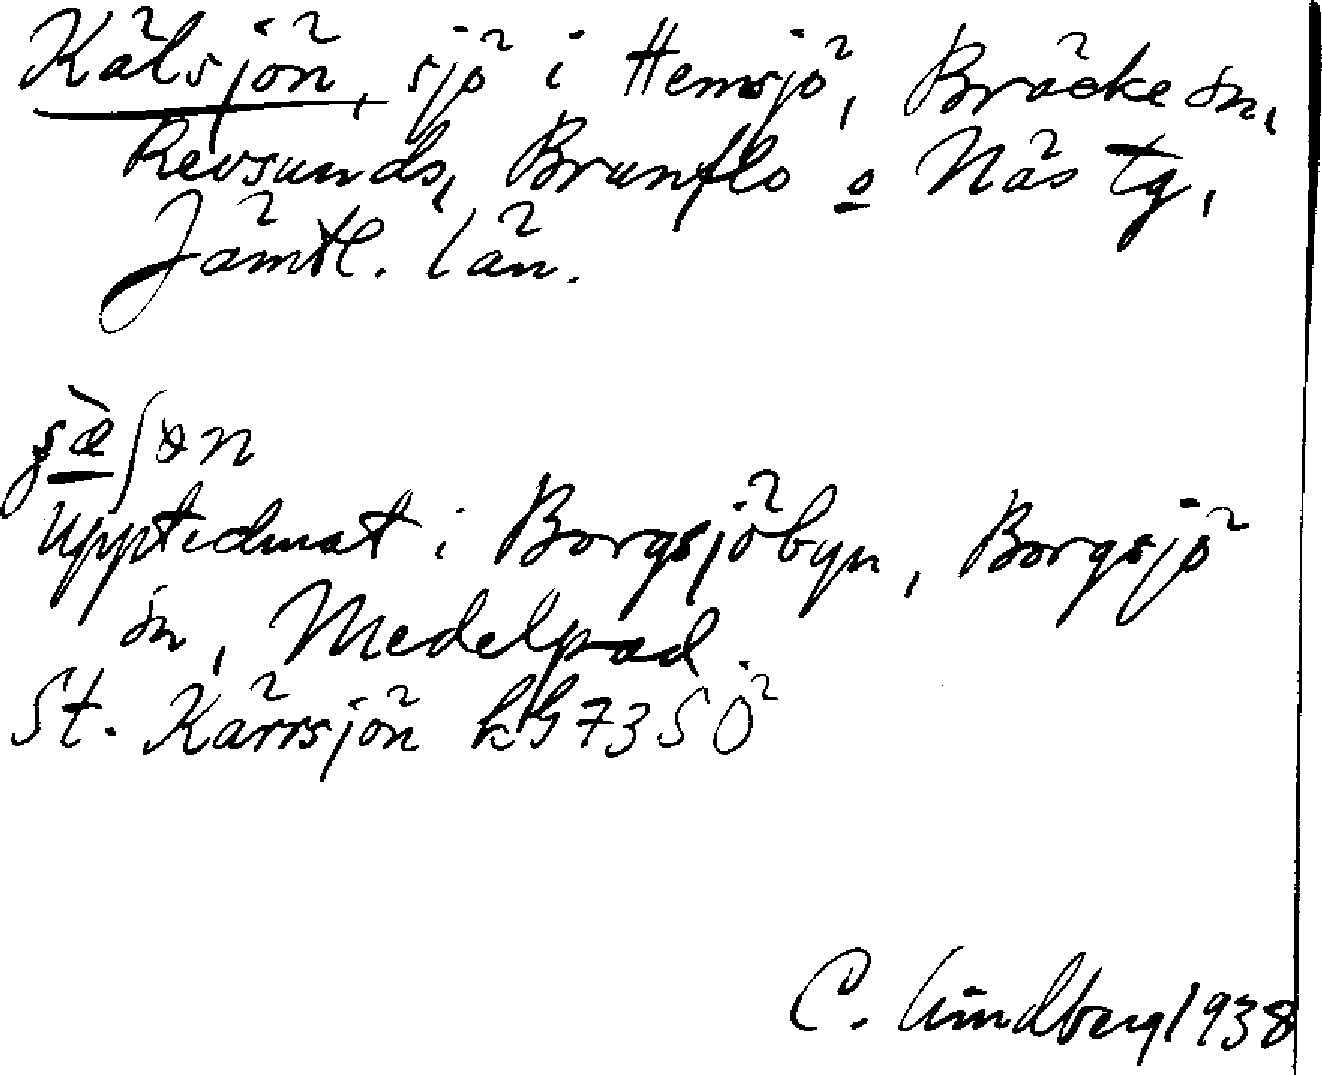 Kälsjön, sjö i Hemsjö, Bräcke sn,
Revsunds, Brunflo o Näs tg,
Jämtl. län.
upptecknat i Borgsjöbyn, Borgsjö
sn, Medelpad.
St. Kärrsjön kbl 73 SÖ
C. Lindberg 1938